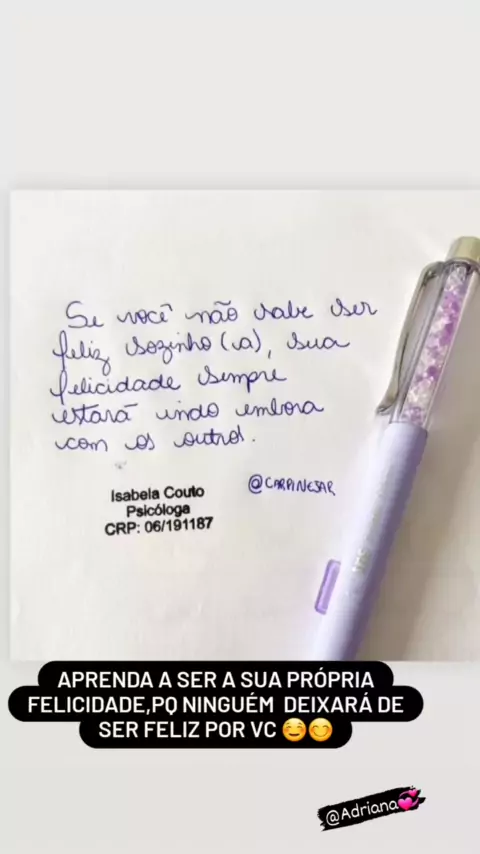 Se você não sabe ser
feliz sozinho(a), sua
felicidade sempre
estará indo embora
com os outros.
@CARPINEJAR
Isabela Couto
Psicóloga
CRP: 06/191187
APRENDA A SER A SUA PRÓPRIA
FELICIDADE,PQ NINGUÉM DEIXARÁ DE
SER FELIZ POR VC ☺️😊
@Adriana💞